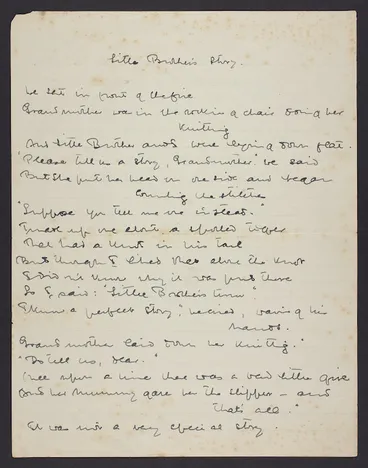 Little Brother's Story.
We sat in front of the fire
Grandmother was in the rocking chair doing her
knitting
And Little Brother and I were lying down flat.
"Please tell us a story, Grandmother" we said
But she put her head on one side and began
counting her stitches
"Suppose you tell me one instead."
I made up one about a spotted tiger
That had a knot in his tail
But though I liked that about the knot
I did not know why it was put there
So I said: "Little Brother's turn"
I know a perfect story, he cried, waving his
hands.
Grandmother laid down her knitting."
"Do tell us, dear."
Once upon a time there was a bad little girl
And her Mummy gave her the slipper – and
that's all."
It was not a very special story.